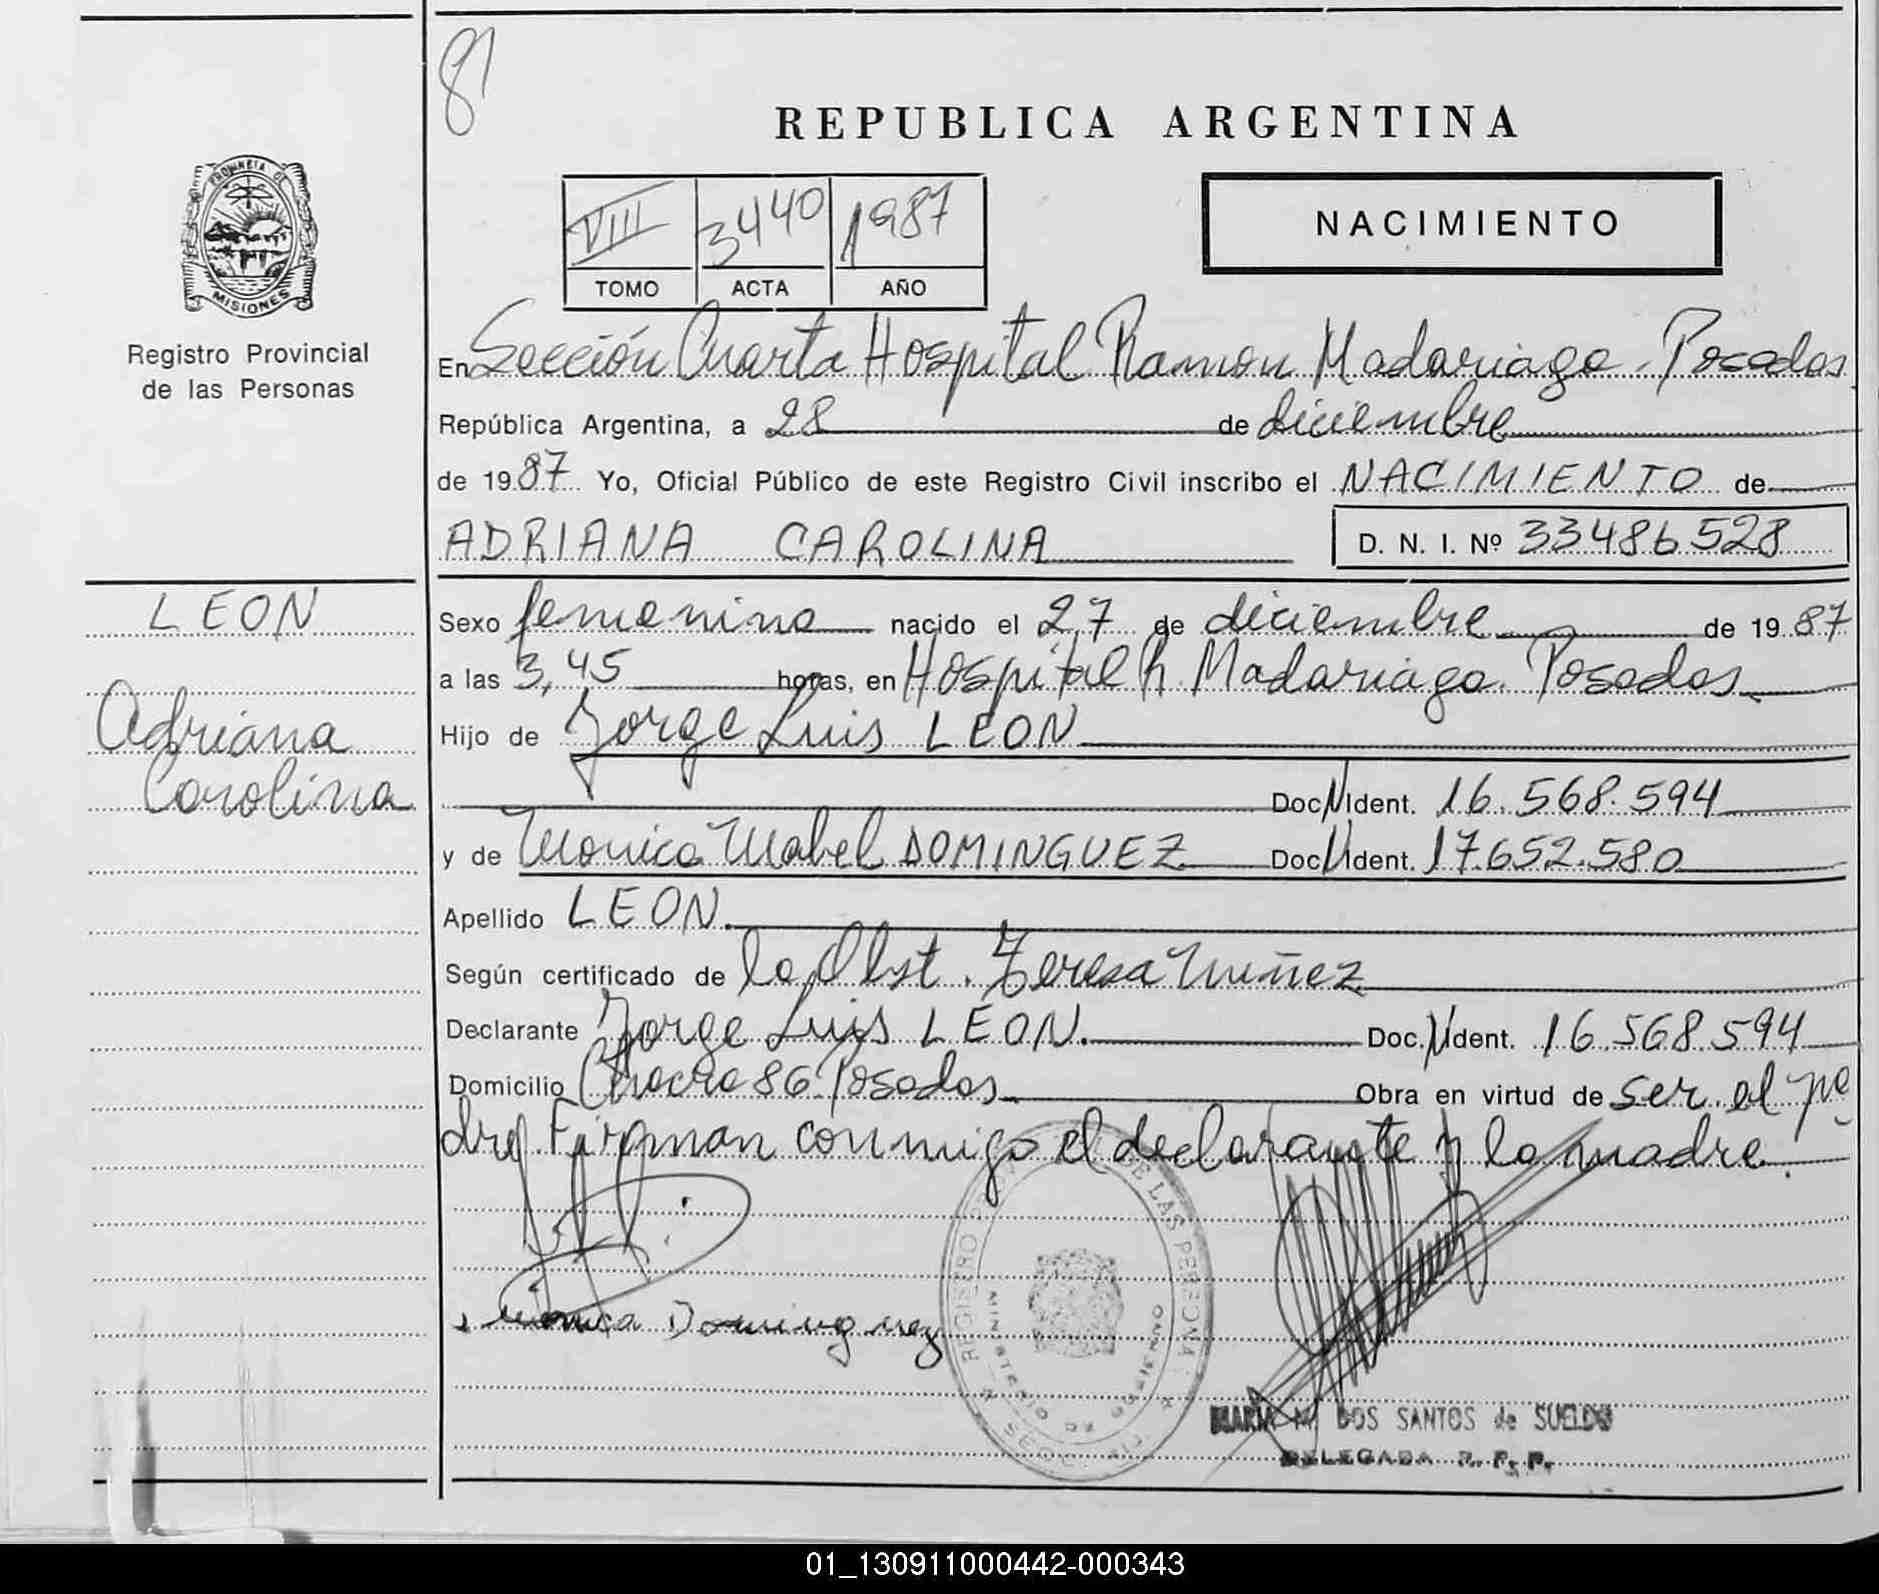 81
REPUBLICA ARGENTINA
PROVINCIA DE
MISIONES
Registro Provincial
de las Personas
VIII 3440 1987
TOMO ACTA AÑO
NACIMIENTO
En Sección Cuarta Hospital Ramon Madariaga - Posadas
República Argentina, a 28 de diciembre
de 1987 Yo, Oficial Público de este Registro Civil inscribo el NACIMIENTO de
ADRIANA CAROLINA D. N. I. Nº 33486528
LEON
Adriana
Carolina
Sexo femenino nacido el 27 de diciembre de 1987
a las 3,45 horas, en Hospital R. Madariaga. Posadas
Hijo de Jorge Luis LEON
Doc N Ident. 16.568.594
y de Monica Mabel DOMINGUEZ Doc N Ident. 17.652.580
Apellido LEON.
Según certificado de la Obst. Teresa Nuñez
Declarante Jorge Luis LEON. Doc. N Ident. 16.568.594
Domicilio Chacra 86. Posadas Obra en virtud de ser el pa
dre. Firman conmigo el declarante y la madre.
Monica Dominguez
REGISTRO DE LAS PERSONAS
MINISTERIO DE GOBIERNO
MARIA M. DOS SANTOS de SUELDO
DELEGADA R. P. P.
01_130911000442-000343